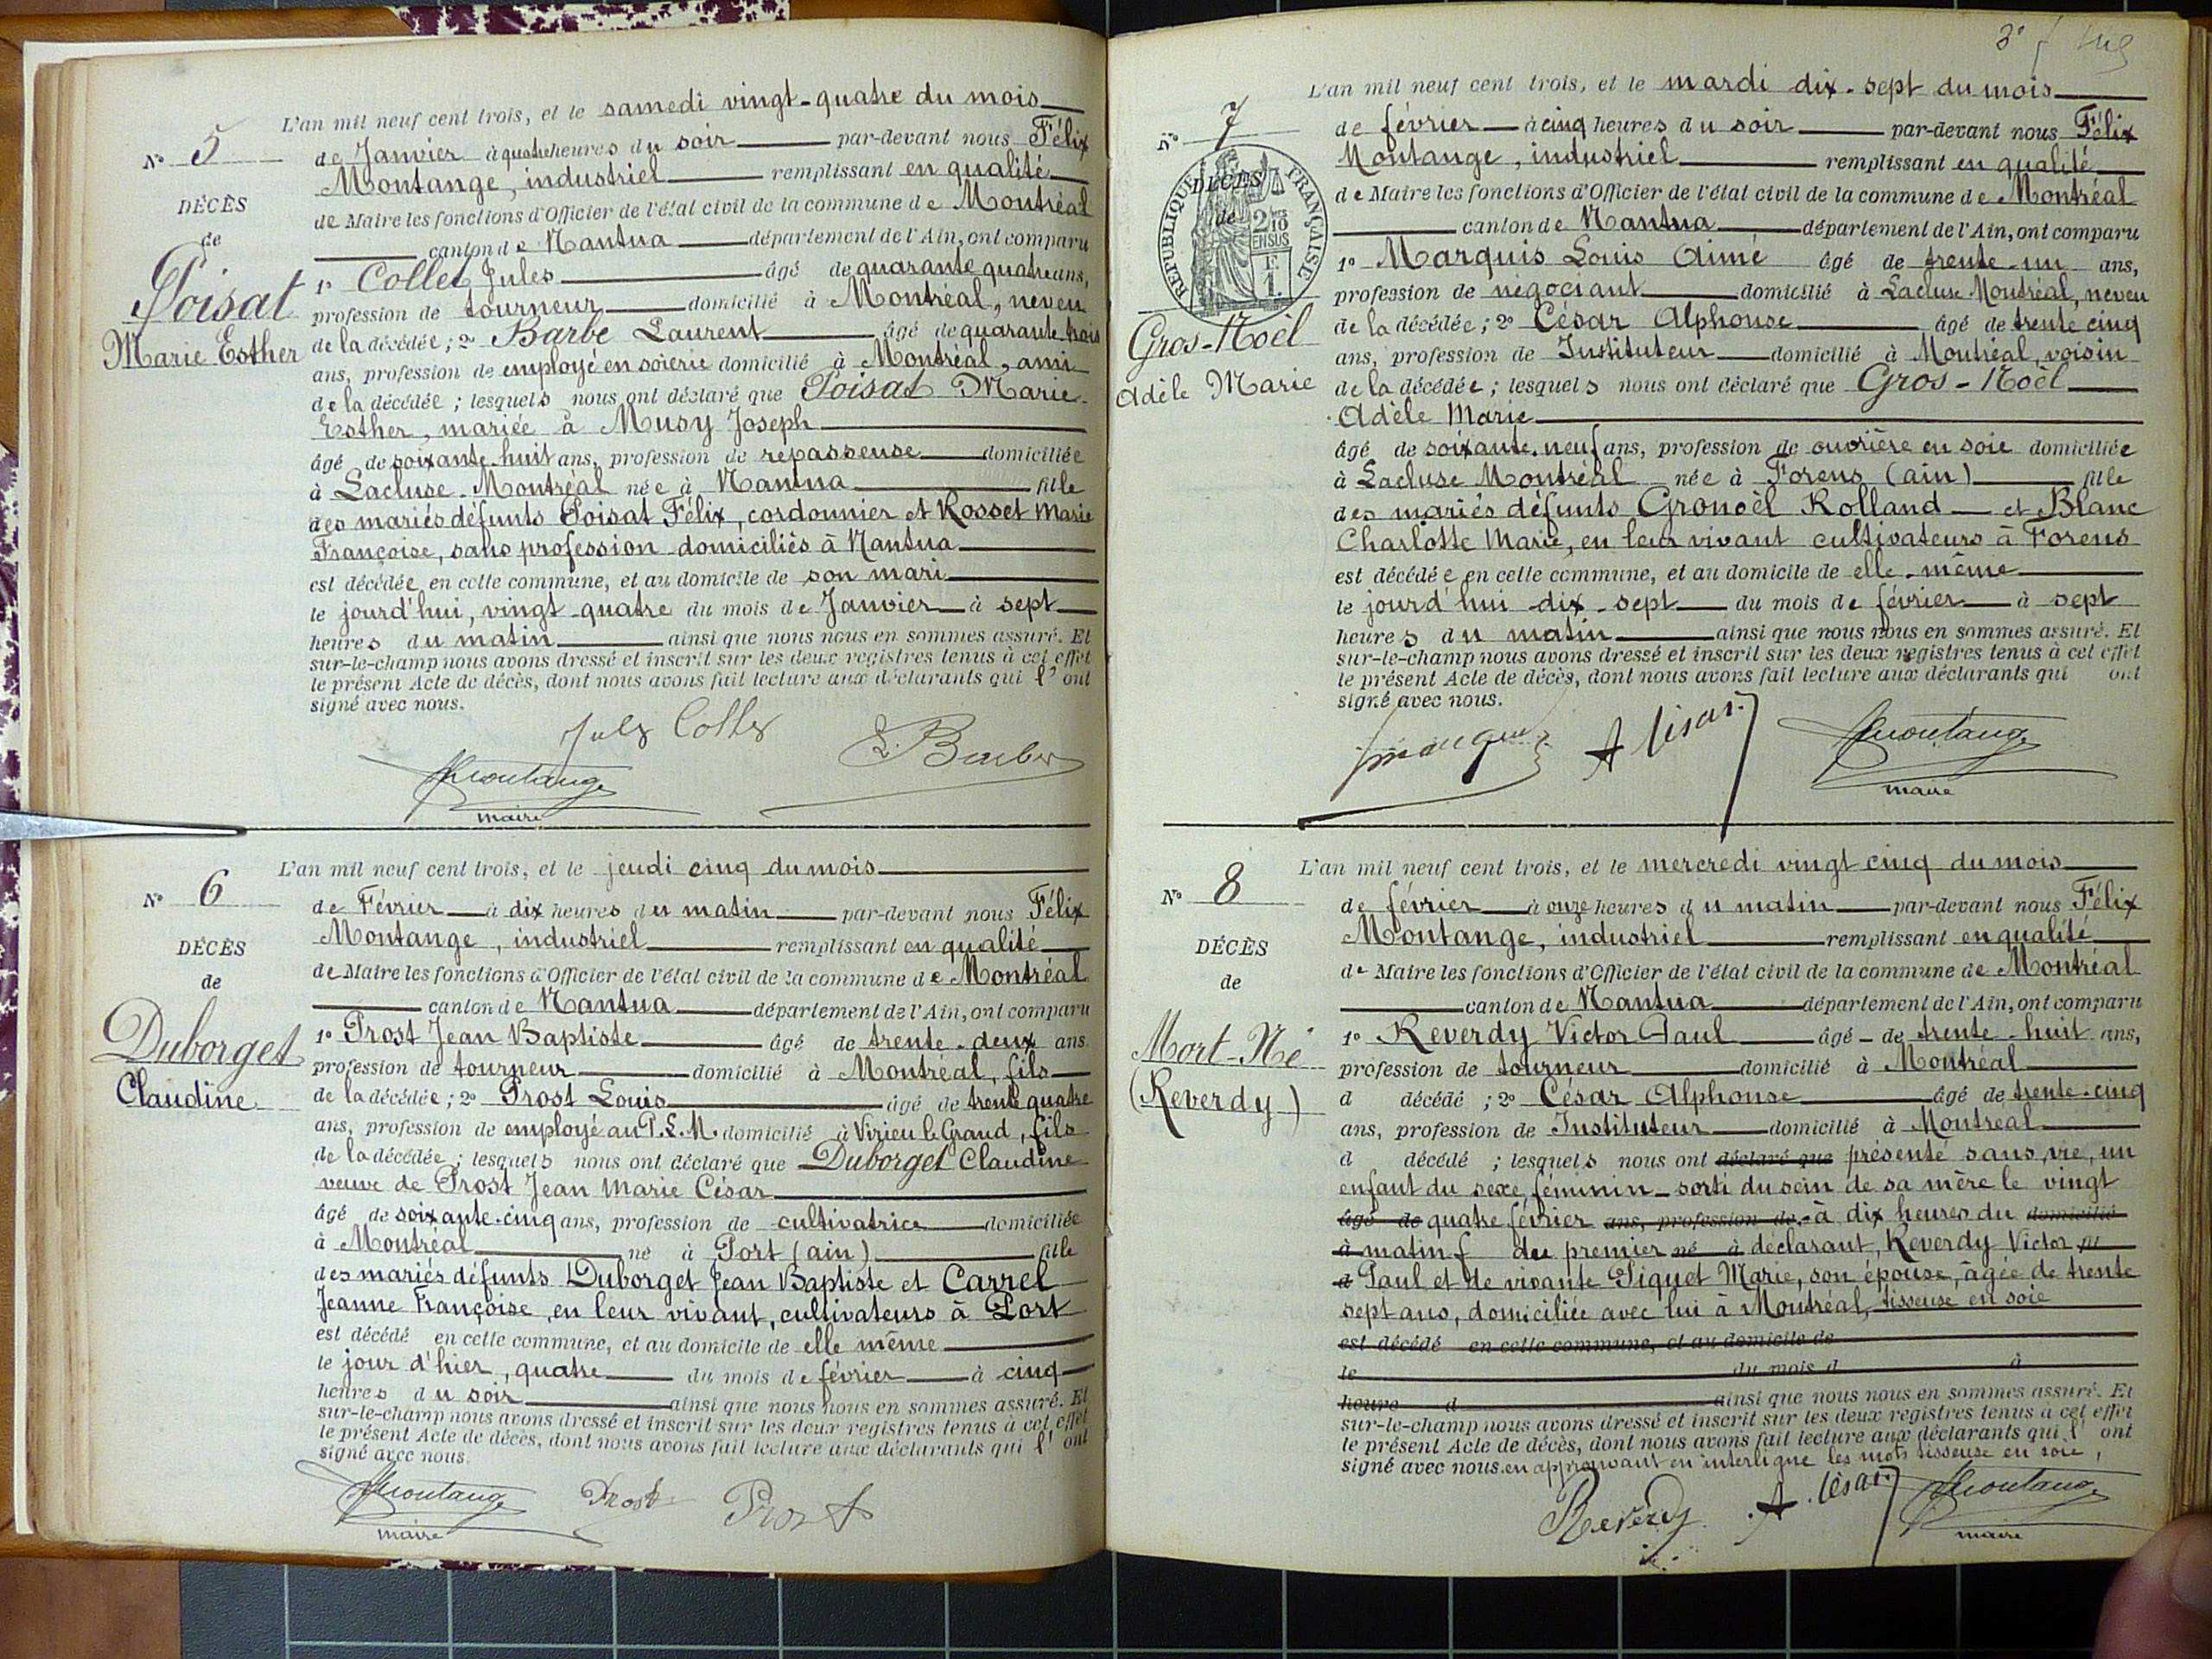 L'an mil neuf cent trois, et le samedi vingt-quatre du mois
N° 5
de Janvier à quatre heures du soir par-devant nous Félix
Montange, industriel remplissant en qualité
DÉCÈS
de Maire les fonctions d'Officier de l'état civil de la commune de Montréal
de
canton de Nantua département de l'Ain, ont comparu
Poisat
Marie Esther
1° Collet Jules âgé de quarante quatre ans,
profession de tourneur domicilié à Montréal, neveu
de la décédée ; 2° Barbe Laurent âgé de quarante trois
ans, profession de employé en soierie domicilié à Montréal, ami
de la décédée ; lesquels nous ont déclaré que Poisat Marie
Esther, mariée à Musy Joseph
âgé de soixante-huit ans, profession de repasseuse domiciliée
à Lacluse-Montréal née à Nantua fille
des mariés défunts Poisat Félix, cordonnier et Rosset Marie
Françoise, sans profession domiciliés à Nantua
est décédée en cette commune, et au domicile de son mari
le jourd'hui, vingt-quatre du mois de Janvier à sept
heures du matin ainsi que nous nous en sommes assuré. Et
sur-le-champ nous avons dressé et inscrit sur les deux registres tenus à cet effet
le présent Acte de décès, dont nous avons fait lecture aux déclarants qui l'ont
signé avec nous.
Jules Collet
L. Barbe
Montange
maire
L'an mil neuf cent trois, et le jeudi cinq du mois
N° 6
de Février à dix heures du matin par-devant nous Félix
Montange, industriel remplissant en qualité
DÉCÈS
de Maire les fonctions d'Officier de l'état civil de la commune de Montréal
de
canton de Nantua département de l'Ain, ont comparu
Duborget
Claudine
1° Prost Jean Baptiste âgé de trente-deux ans
profession de tourneur domicilié à Montréal, fils
de la décédée ; 2° Prost Louis âgé de trente quatre
ans, profession de employé au P.L.M. domicilié à Virieu le Grand, fils
de la décédée ; lesquels nous ont déclaré que Duborget Claudine
veuve de Prost Jean Marie César
âgé de soixante-cinq ans, profession de cultivatrice domiciliée
à Montréal né à Port (ain) fille
des mariés défunts Duborget Jean Baptiste et Carrel
Jeanne Françoise, en leur vivant, cultivateurs à Port
est décédé en cette commune, et au domicile de elle même
le jour d'hier, quatre du mois de février à cinq
heures du soir ainsi que nous nous en sommes assuré. Et
sur-le-champ nous avons dressé et inscrit sur les deux registres tenus à cet effet
le présent Acte de décès, dont nous avons fait lecture aux déclarants qui l'ont
signé avec nous.
Montange
maire
Prost
Prost
3°
L'an mil neuf cent trois, et le mardi dix-sept du mois
N° 7
de février à cinq heures du soir par-devant nous Félix
Montange, industriel remplissant en qualité
DÉCÈS
de
RÉPUBLIQUE FRANÇAISE
2/10 EN SUS
1 F.
de Maire les fonctions d'Officier de l'état civil de la commune de Montréal
canton de Nantua département de l'Ain, ont comparu
Gros-Noël
Adèle Marie
1° Marquis Louis Aimé âgé de trente-un ans,
profession de négociant domicilié à Lacluse Montréal, neveu
de la décédée ; 2° César Alphonse âgé de trente cinq
ans, profession de Instituteur domicilié à Montréal, voisin
de la décédée ; lesquels nous ont déclaré que Gros-Noël
Adèle Marie
âgé de soixante-neuf ans, profession de ouvrière en soie domiciliée
à Lacluse Montréal née à Forens (ain) fille
des mariés défunts Gronoël Rolland et Blanc
Charlotte Marie, en leur vivant cultivateurs à Forens
est décédée en cette commune, et au domicile de elle-même
le jourd'hui dix-sept du mois de février à sept
heures du matin ainsi que nous nous en sommes assuré. Et
sur-le-champ nous avons dressé et inscrit sur les deux registres tenus à cet effet
le présent Acte de décès, dont nous avons fait lecture aux déclarants qui ont
signé avec nous.
A César
Montange
maire
L'an mil neuf cent trois, et le mercredi vingt cinq du mois
N° 8
de février à onze heures du matin par-devant nous Félix
Montange, industriel remplissant en qualité
DÉCÈS
de Maire les fonctions d'Officier de l'état civil de la commune de Montréal
de
canton de Nantua département de l'Ain, ont comparu
Mort-Né
(Reverdy)
1° Reverdy Victor Paul âgé de trente-huit ans,
profession de tourneur domicilié à Montréal
d décédé ; 2° César Alphonse âgé de trente-cinq
ans, profession de Instituteur domicilié à Montréal
d décédé ; lesquels nous ont déclaré que présenté sans vie, un
enfant du sexe féminin sorti du sein de sa mère le vingt
âgé de quatre février ans, profession de à dix heures du domicilié
à matin f du premier né à déclarant, Reverdy Victor fil
d Paul et de vivante Piquet Marie, son épouse, âgée de trente
sept ans, domiciliée avec lui à Montréal, tisseuse en soie
est décédé en cette commune, et au domicile de
le du mois d à
heure d ainsi que nous nous en sommes assuré. Et
sur-le-champ nous avons dressé et inscrit sur les deux registres tenus à cet effet
le présent Acte de décès, dont nous avons fait lecture aux déclarants qui l'ont
signé avec nous. en approuvant en interligne les mots tisseuse en soie,
Reverdy
A. César
Montange
maire